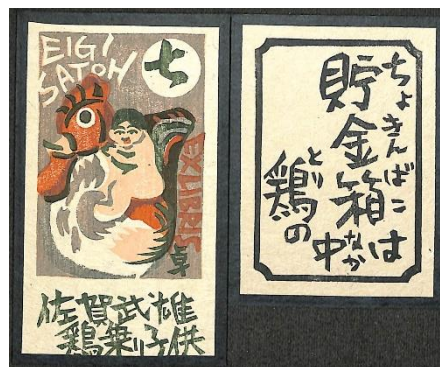 EIGI
SATOH
ち
EXLIBRIS
卓
佐賀武雄
鶏乗り子供
ちょきんばこ
貯金箱は
とり なか
鶏の中